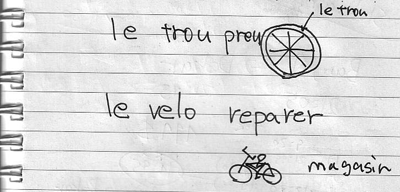 le trou
le trou preu
le velo reparer
magasin